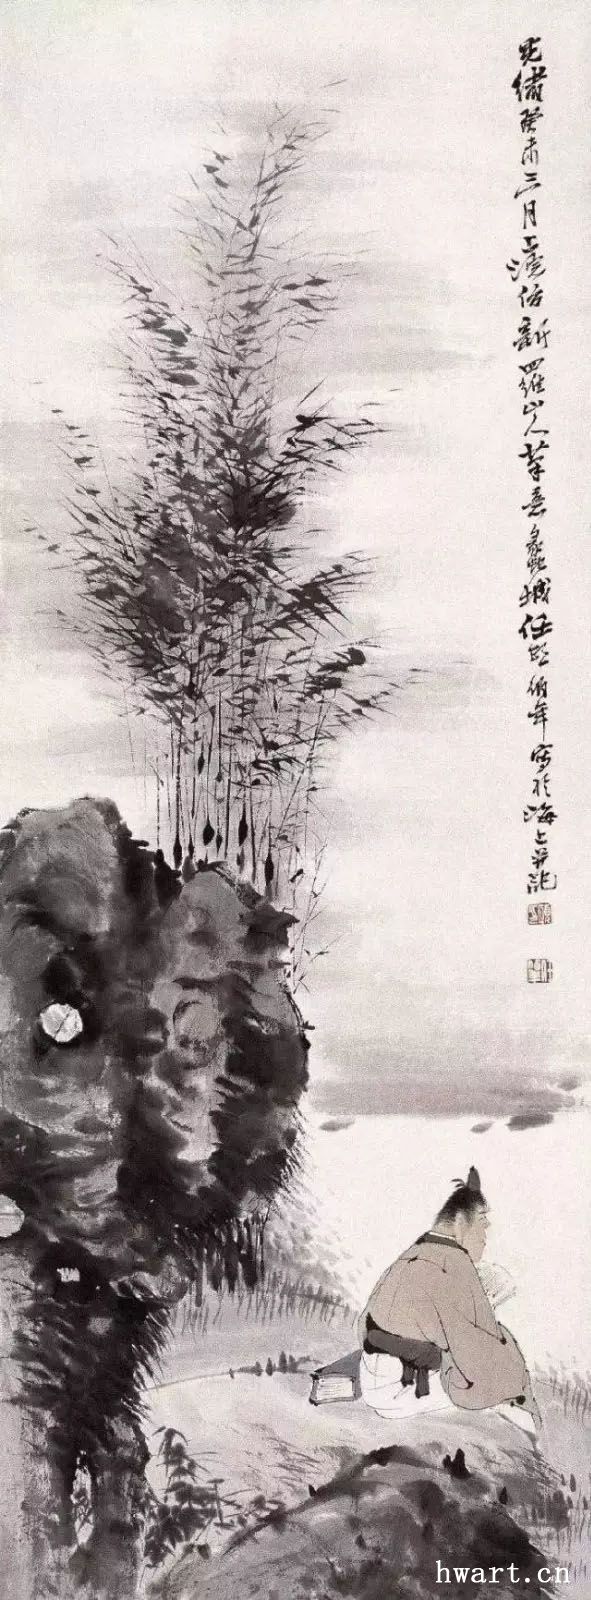 光绪癸未三月上浣仿新羅山人筆意蠡城任頤伯年寫於海上並記
hwart.cn